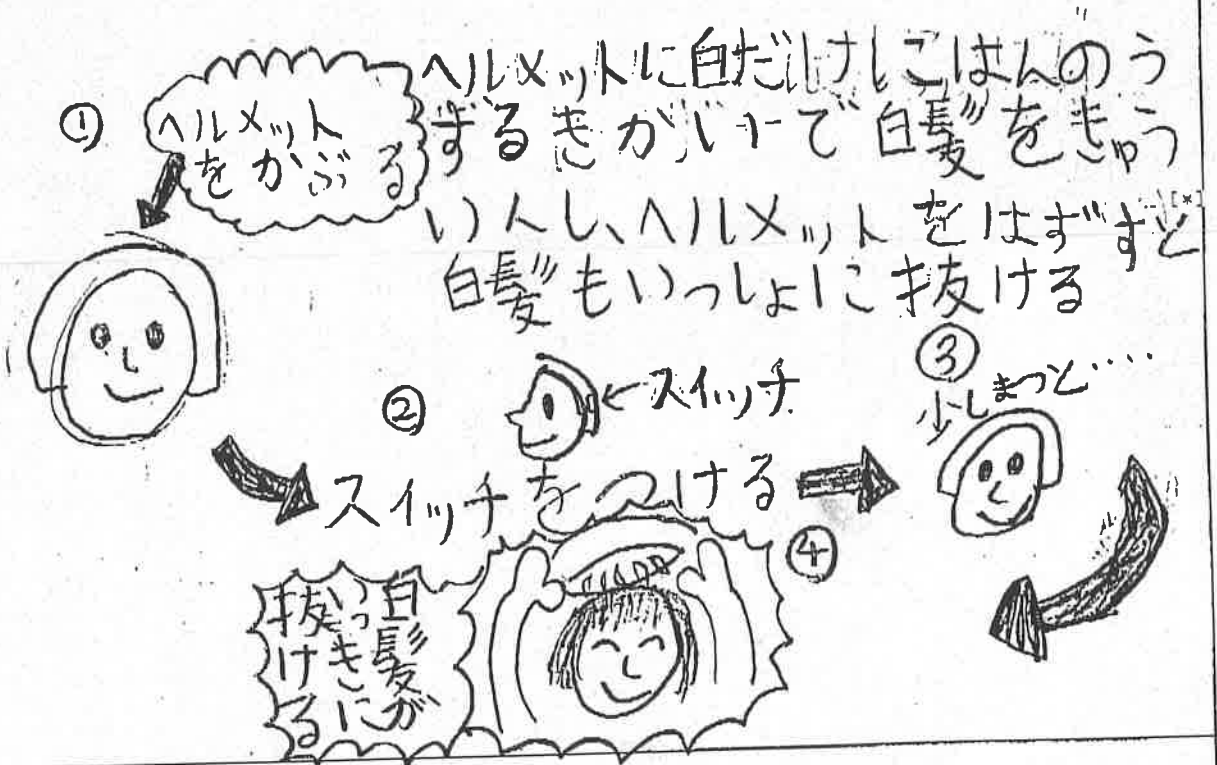 ①
ヘルメット
をかぶる
ヘルメットに白だけにはんのう
するきかいで白髪をきゅう
いんし、ヘルメットをはずすと
白髪もいっしょに抜ける
②
←スイッチ
スイッチをつける
③
少しまつと‥‥
④
白髪が
いっきに
抜ける